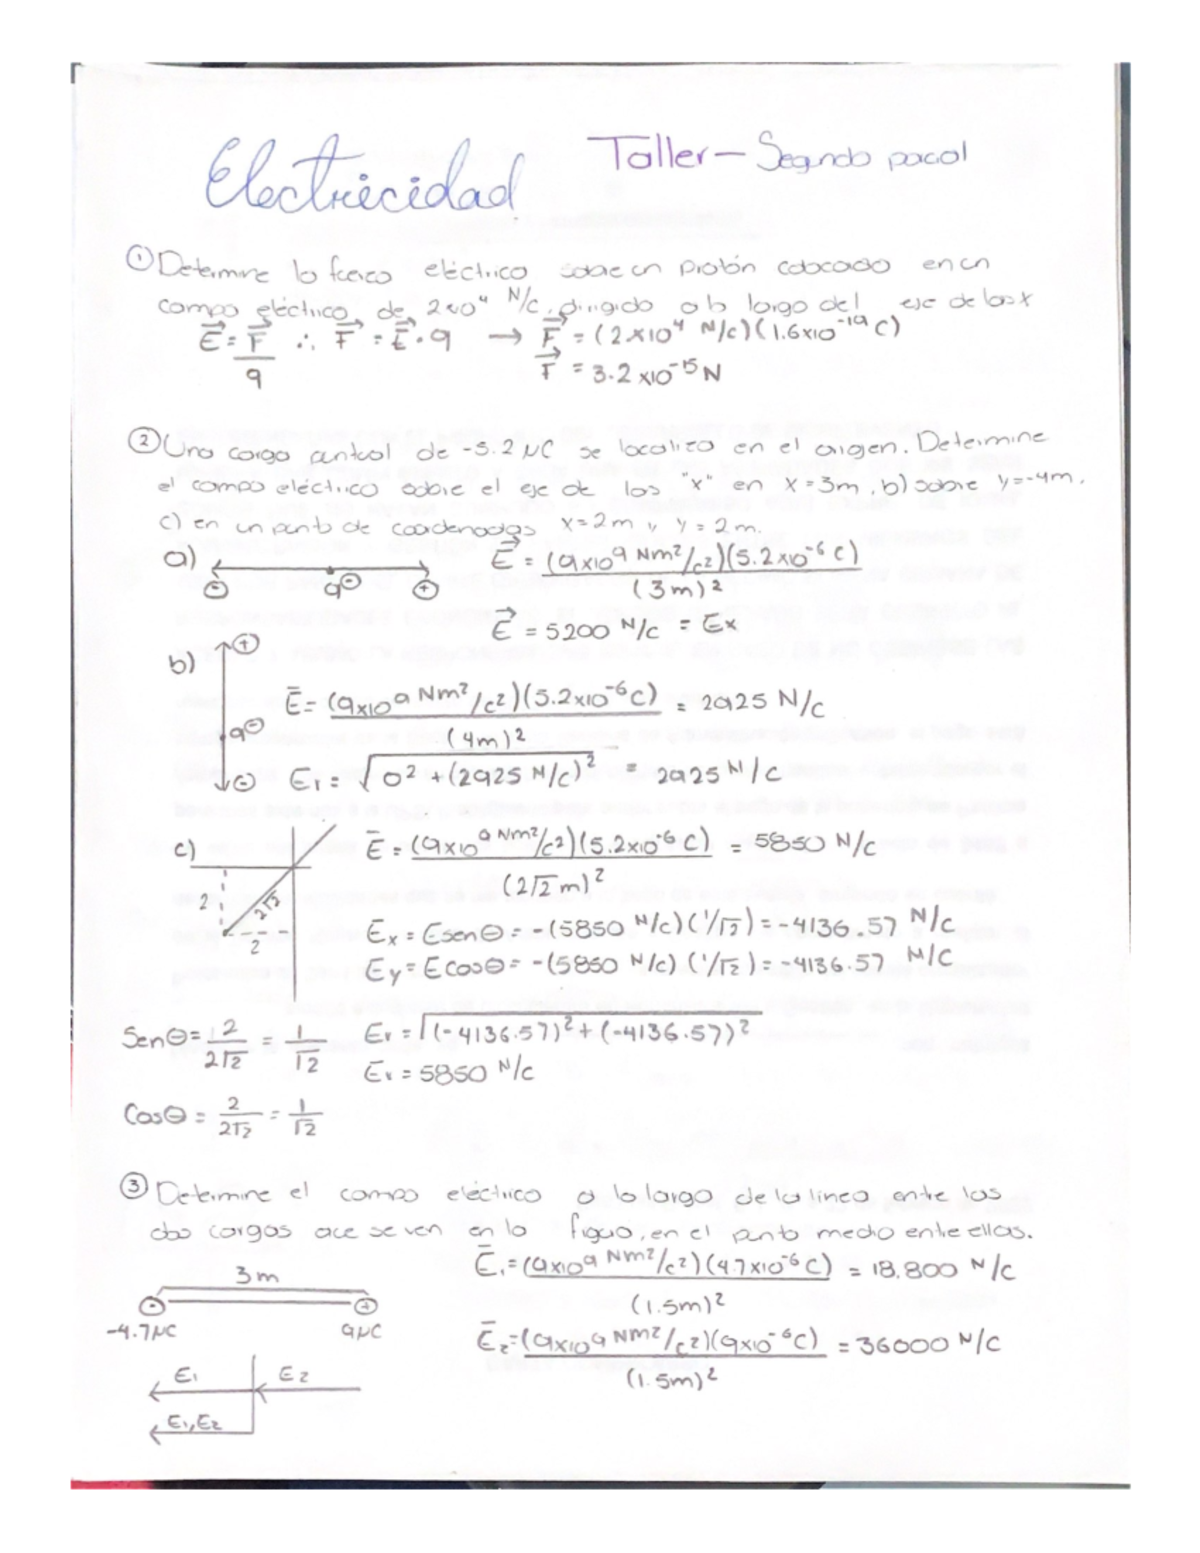 Electricidad
Taller - Segundo parcial
① Determine la fuerza eléctrica sobre un protón colocado en un
campo eléctrico de 2x10⁴ N/C, dirigido a lo largo del eje de las x
E = F/q ∴ F = E · q → F = (2x10⁴ N/C)(1.6x10⁻¹⁹ C)
F = 3.2 x10⁻¹⁵ N
② Una carga puntual de -5.2 μC se localiza en el origen. Determine
el campo eléctrico sobre el eje de las "x" en x = 3m, b) sobre y=-4m,
c) en un punto de coordenadas x=2m y y=2m.
a) ⊖ q⊖ ⊕ E = (9x10⁹ Nm²/c²)(5.2x10⁻⁶ C) / (3m)²
E = 5200 N/C = Ex
b) ⊕ q⊖ ⊖
E = (9x10⁹ Nm²/c²)(5.2x10⁻⁶ C) / (4m)² = 2925 N/C
Er = √0² + (2925 N/C)² = 2925 N/C
c) E = (9x10⁹ Nm²/c²)(5.2x10⁻⁶ C) / (2√2 m)² = 5850 N/C
2 2√2 2
Ex = Esenθ = -(5850 N/C)(1/√2) = -4136.57 N/C
Ey = Ecosθ = -(5850 N/C)(1/√2) = -4136.57 N/C
Senθ = 2/2√2 = 1/√2 Er = √(-4136.57)² + (-4136.57)²
Er = 5850 N/C
Cosθ = 2/2√2 = 1/√2
③ Determine el campo eléctrico a lo largo de la línea entre las
dos cargas que se ven en la figura, en el punto medio entre ellas.
3m E₁ = (9x10⁹ Nm²/c²)(4.7x10⁻⁶ C) / (1.5m)² = 18,800 N/C
-4.7μC 9μC
E₂ = (9x10⁹ Nm²/c²)(9x10⁻⁶ C) / (1.5m)² = 36000 N/C
E₁ E₂
E₁,E₂